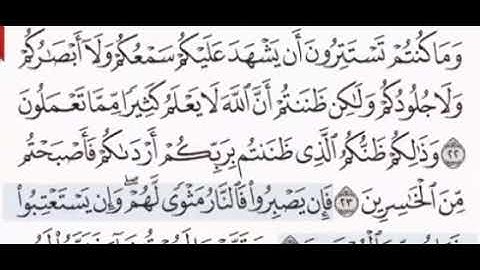 وَمَا كُنتُمْ تَسْتَتِرُونَ أَن يَشْهَدَ عَلَيْكُمْ سَمْعُكُمْ وَلَآ أَبْصَٰرُكُمْ
وَلَا جُلُودُكُمْ وَلَٰكِن ظَنَنتُمْ أَنَّ ٱللَّهَ لَا يَعْلَمُ كَثِيرًا مِّمَّا تَعْمَلُونَ
٢٢ وَذَٰلِكُمْ ظَنُّكُمُ ٱلَّذِى ظَنَنتُم بِرَبِّكُمْ أَرْدَىٰكُمْ فَأَصْبَحْتُم
مِّنَ ٱلْخَٰسِرِينَ ٢٣ فَإِن يَصْبِرُوا۟ فَٱلنَّارُ مَثْوًى لَّهُمْ ۖ وَإِن يَسْتَعْتِبُوا۟